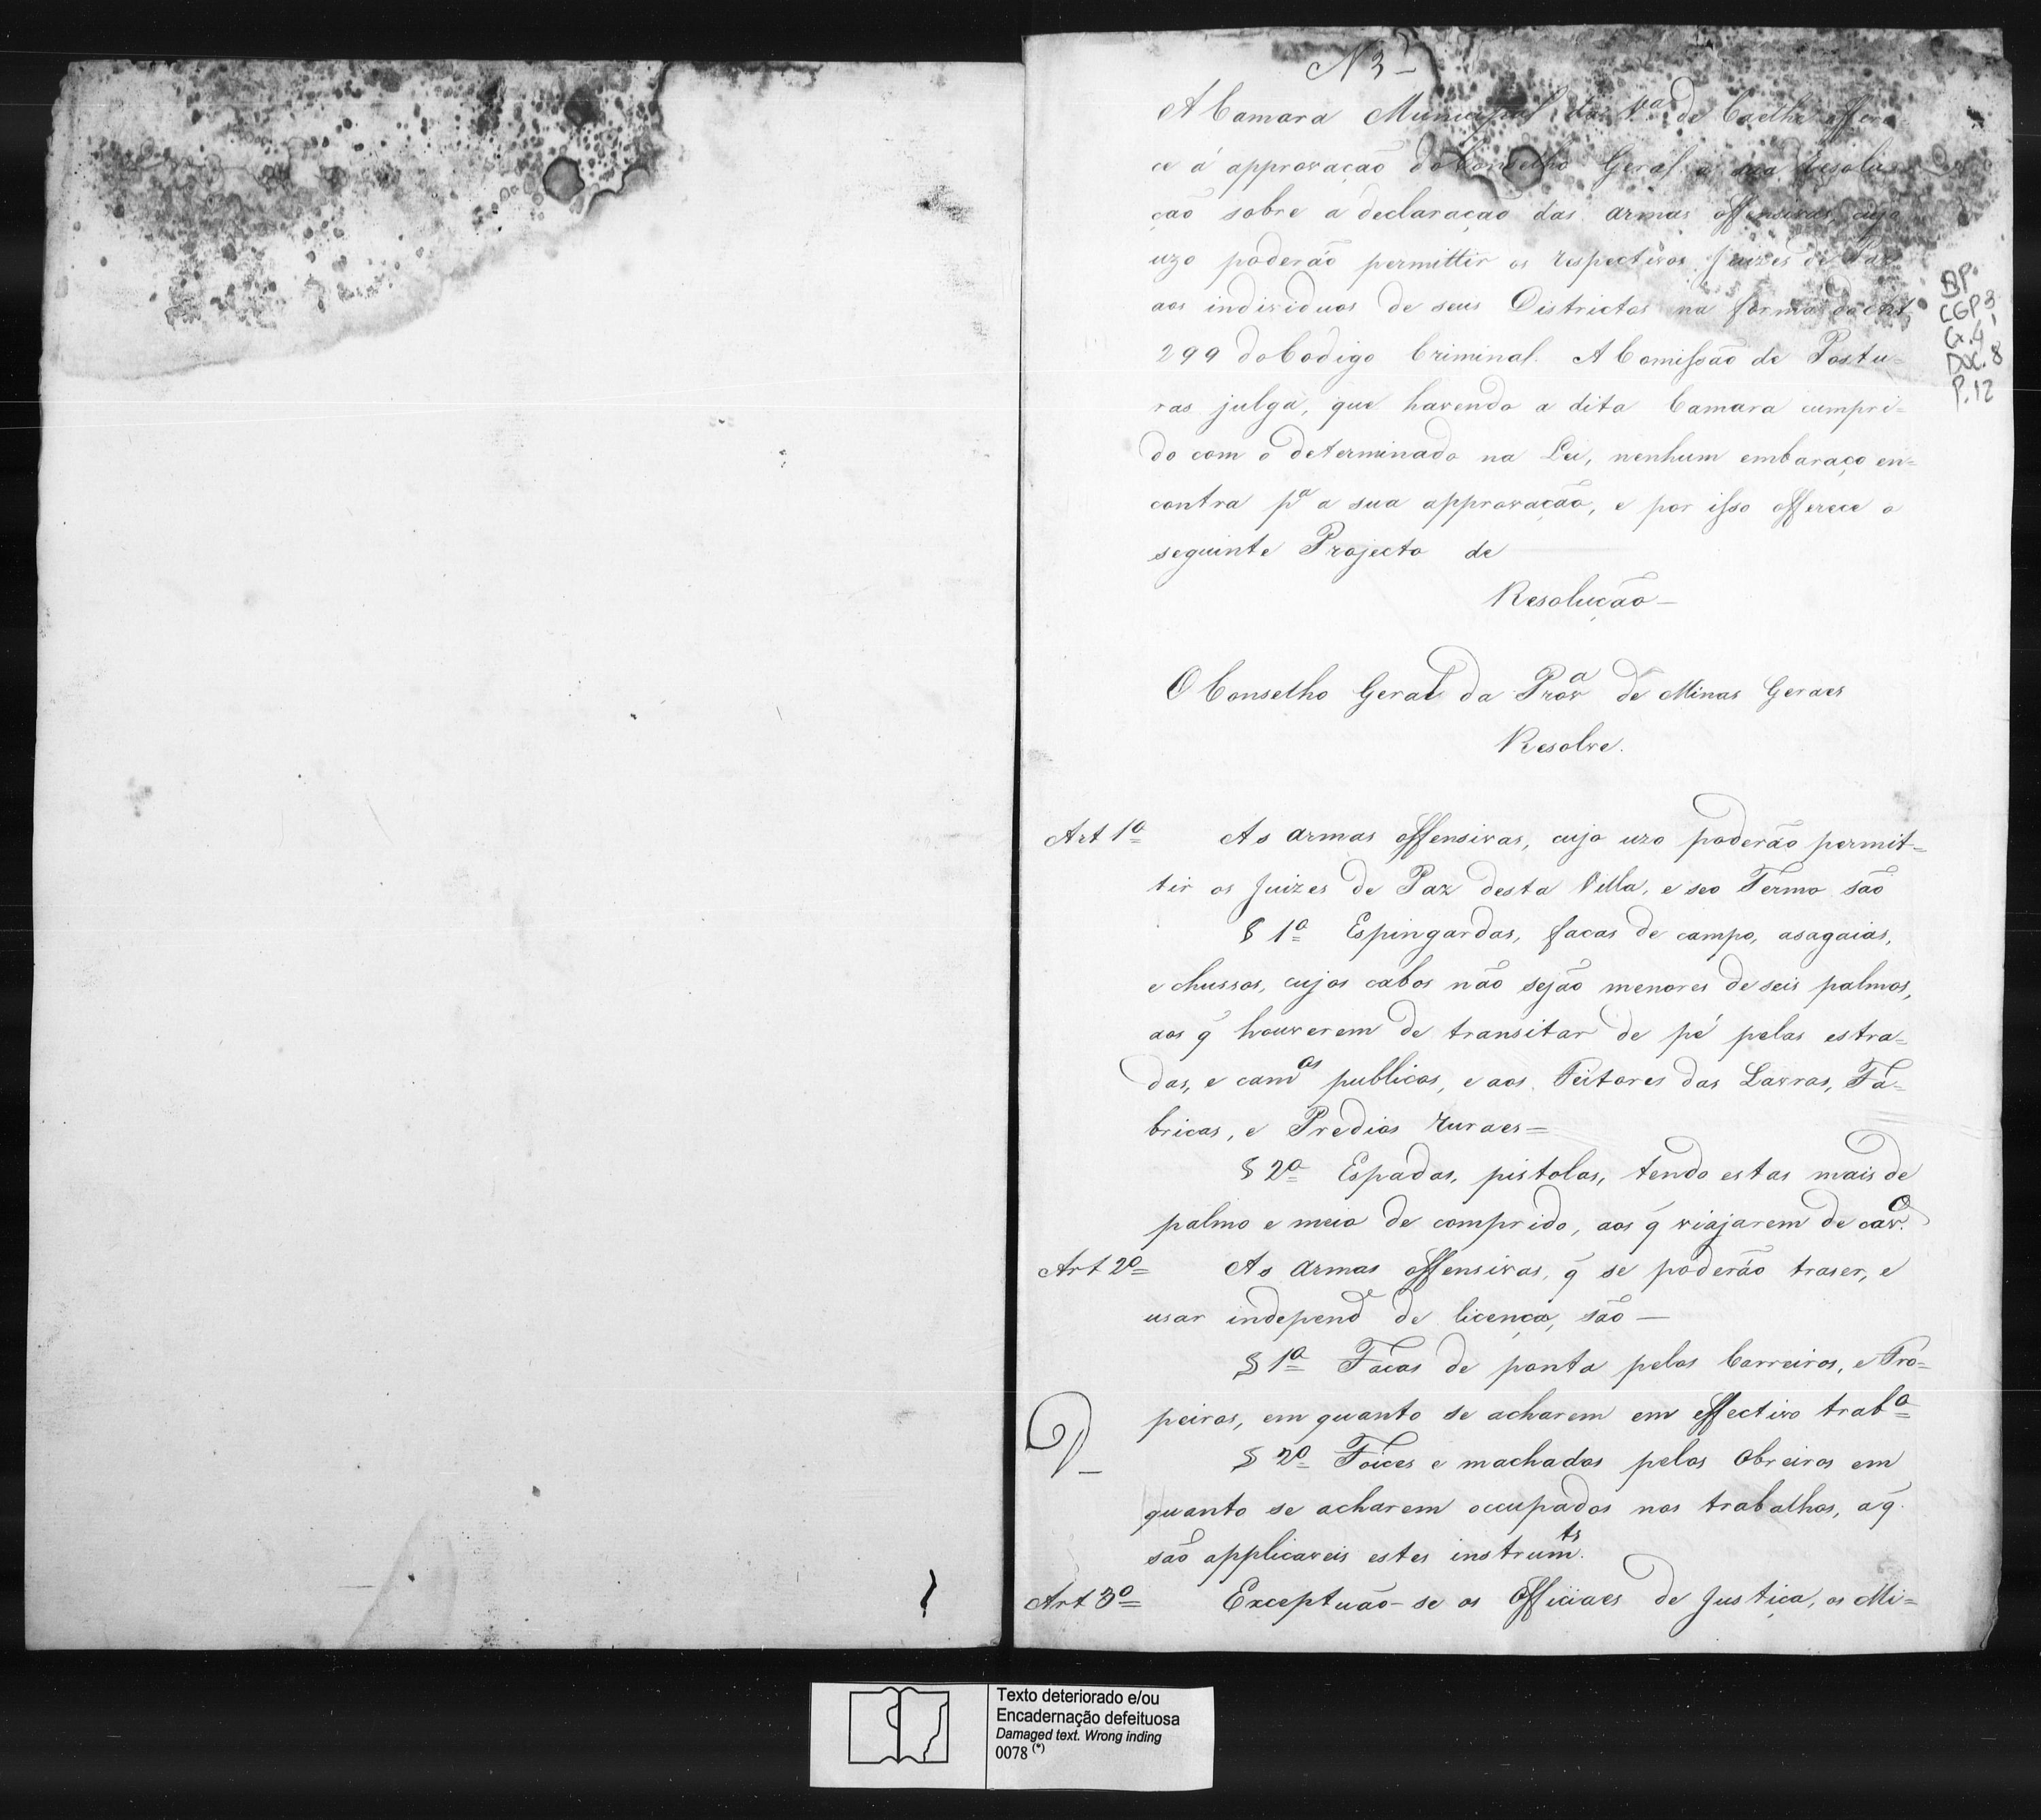 N 3
A Camara Municipal da Vª de Caethé offere-
ce á approvação do Conselho Geral a sua resolu-
ção sobre a declaração das armas offensivas, cujo
uzo poderáõ permittir os respectivos Juizes de Paz
aos individuos de seus Districtos na forma do Art
299 do Codigo Criminal. A Comissão de Postu=
ras julga, que havendo a dita Camara cumpri=
do com o determinado na Lei, nenhum embaraço en=
contra pª a sua approvação, e por isso offerece o
seguinte Projecto de
Resolução—
O Conselho Geral da Provª de Minas Geraes
Resolve.
Art 1º As armas offensivas, cujo uzo poderáõ permit=
tir os Juizes de Paz desta Villa, e seo Termo são
§ 1º Espingardas, facas de campo, asagaias,
e chussos, cujos cabos não sejão menores de seis palmos,
aos q̃ houverem de transitar de pé pelas estra=
das, e camos publicos, e aos Feitores das Lavras, Fa=
bricas, e Predios ruraes=
§ 2º Espadas, pistolas, tendo estas mais de
palmo e meio de comprido, aos q̃ viajarem de cavº.
Art 2º As armas offensivas, q̃ se poderáõ traser, e
usar independe de licença, são—
§ 1º Facas de ponta pelos Carreiros, e Tro=
peiros, em quanto se acharem em effectivo trabº
§ 2º Foices e machados pelos Obreiros em
quanto se acharem occupados nos trabalhos, a q̃
são applicaveis estes instrumts.
Art 3º Exceptuão-se os Officiaes de Justiça, os Mi=
AP.
CGP3,
Cx.4
DOC.8
P.12
Texto deteriorado e/ou
Encadernação defeituosa
Damaged text. Wrong inding
0078 (*)